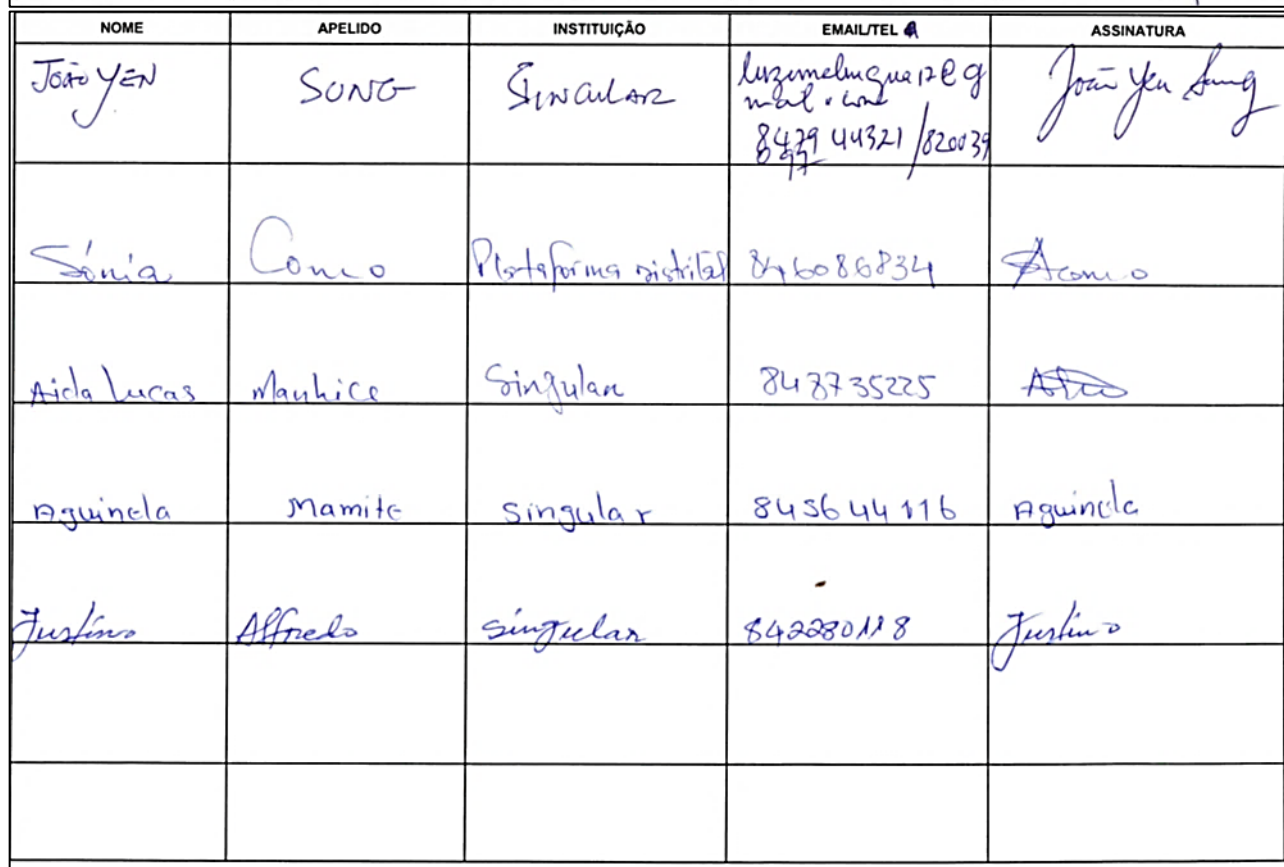 NOME APELIDO INSTITUIÇÃO EMAIL/TEL ASSINATURA
João YEN SONG Singular João Yen Song
8479 44321 / 820039
Sónia Como Plataforma distrital 846086834 Acomo
Aida Lucas Manhice Singular 848735225
Aguinela Mamite singular 845644116 Aguinela
Justino Alfredo singular 842280118 Justino